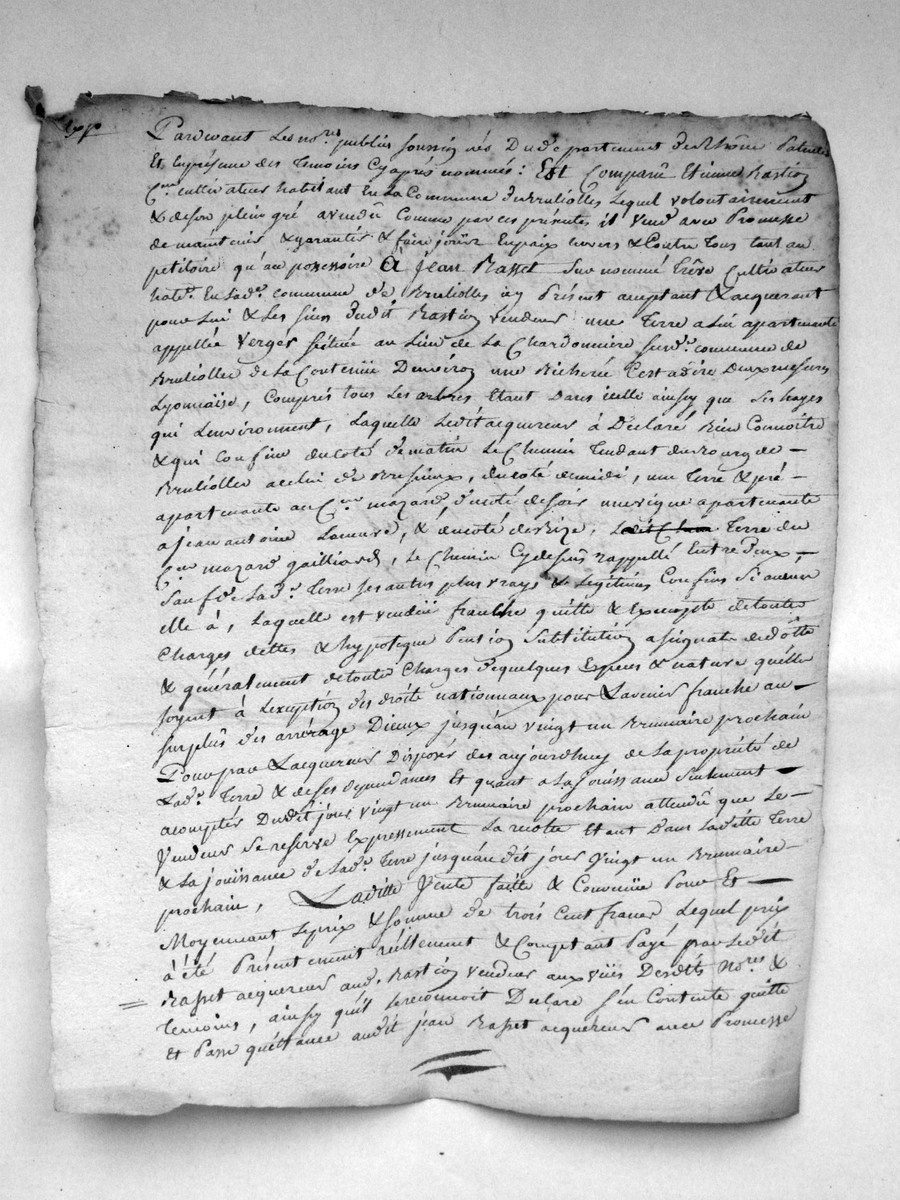 Pardevant Les no.res publics soussignés Du departement du Rhône Patentés
Et En présence des Temoins Cyaprés nommés: Est Comparu Etienne Rastion
C.en cultivateur habitant En La Commune de Brulliolles Lequel volontairement
& de son plein gré a vendû Comme par ces présentes il Vend avec Promesse
de maintenir & garantir & faire joüir En paix Envers & Contre Tous tant au
petitoire qu'au possessoire à Jean Rasset surnommé Cultivateur
habt. En Lad.e commune de Brulliolles icy Présent acceptant & acquerant
pour Lui & Les siens dudit Rastion vendeur une Terre a Lui apartenante
appellée Verger scituée au Lieu de La Chardonniere sur d.e commune de
Brulliolles de La Contenüe D'environ une Bicherée C'est a dire Deux mesures
Lyonnaise, Compris tous Les arbres Etant Dans icelle ainsy que Les hayes
qui L'environnent, Laquelle Ledit acquereur à Déclaré Bien Connoître
& qui Confine du Coté de matin Le Chemin Tendant du Bourg de
Brulliolles a celui de Bressieux, du coté de midi, une Terre & pré
apartenante au C.en mazard, du coté de soir une vigne apartenante
a jean antoine & du coté de Bize, Terre du
C.en mazard gailliard, Le Chemin Cy dessus rappellé Entre deux,
Sauf de Lad.e Terre ses autres plus vrays & Legitimes Confins Si aucun
elle à, Laquelle est vendüe franche quitte & Exempte de toutes
Charges dettes & hypoteque Pension Substitution assignate de dotte
& généralement de toute Charges de quelques Especes & nature quelles
soyent à L'exception des droits nationnaux pour L'avenir franche au
surplus des arrérage D'ieux jusqu'au vingt un Brumaire prochain
Pour par L'acquereur Disposer des aujourdhuy de La propriété de
Lad.e Terre & de ses dependances Et quant a La jouissance Seulement
acompter Dudit jour vingt un Brumaire prochain attendu que Le
Vendeur Se reserve Expressement La recolte Etant Dans Laditte Terre
& La jouïssance de Lad.e Terre jusqu'au dit jour Vingt un Brumaire
prochain, Laditte Vente faitte & Convenüe Pour Et
Moyennant Le prix & somme de trois Cent francs Lequel prix
à été Présentement réellement & Comptant Payé par Ledit
Rasset acquereur aud. Rastion vendeur aux vües Desdits No.res &
Temoins, ainsy qu'il Le reconnoit Déclare S'en Contente quitte
et Passe quittance audit jean Rasset acquereur avec Promesse